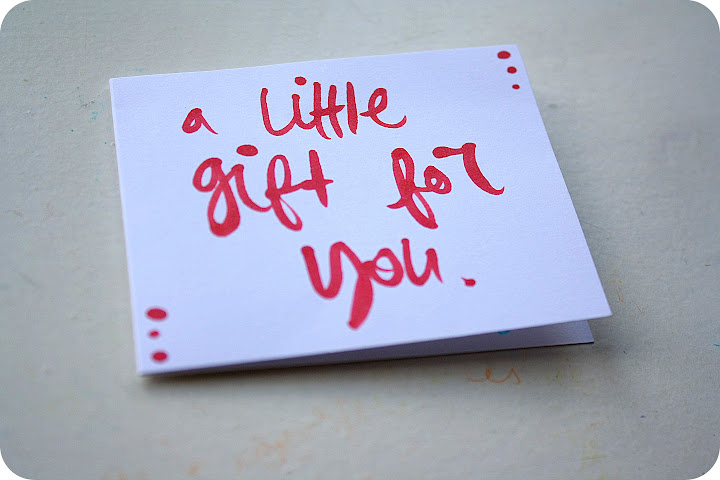 a little
gift for
you.